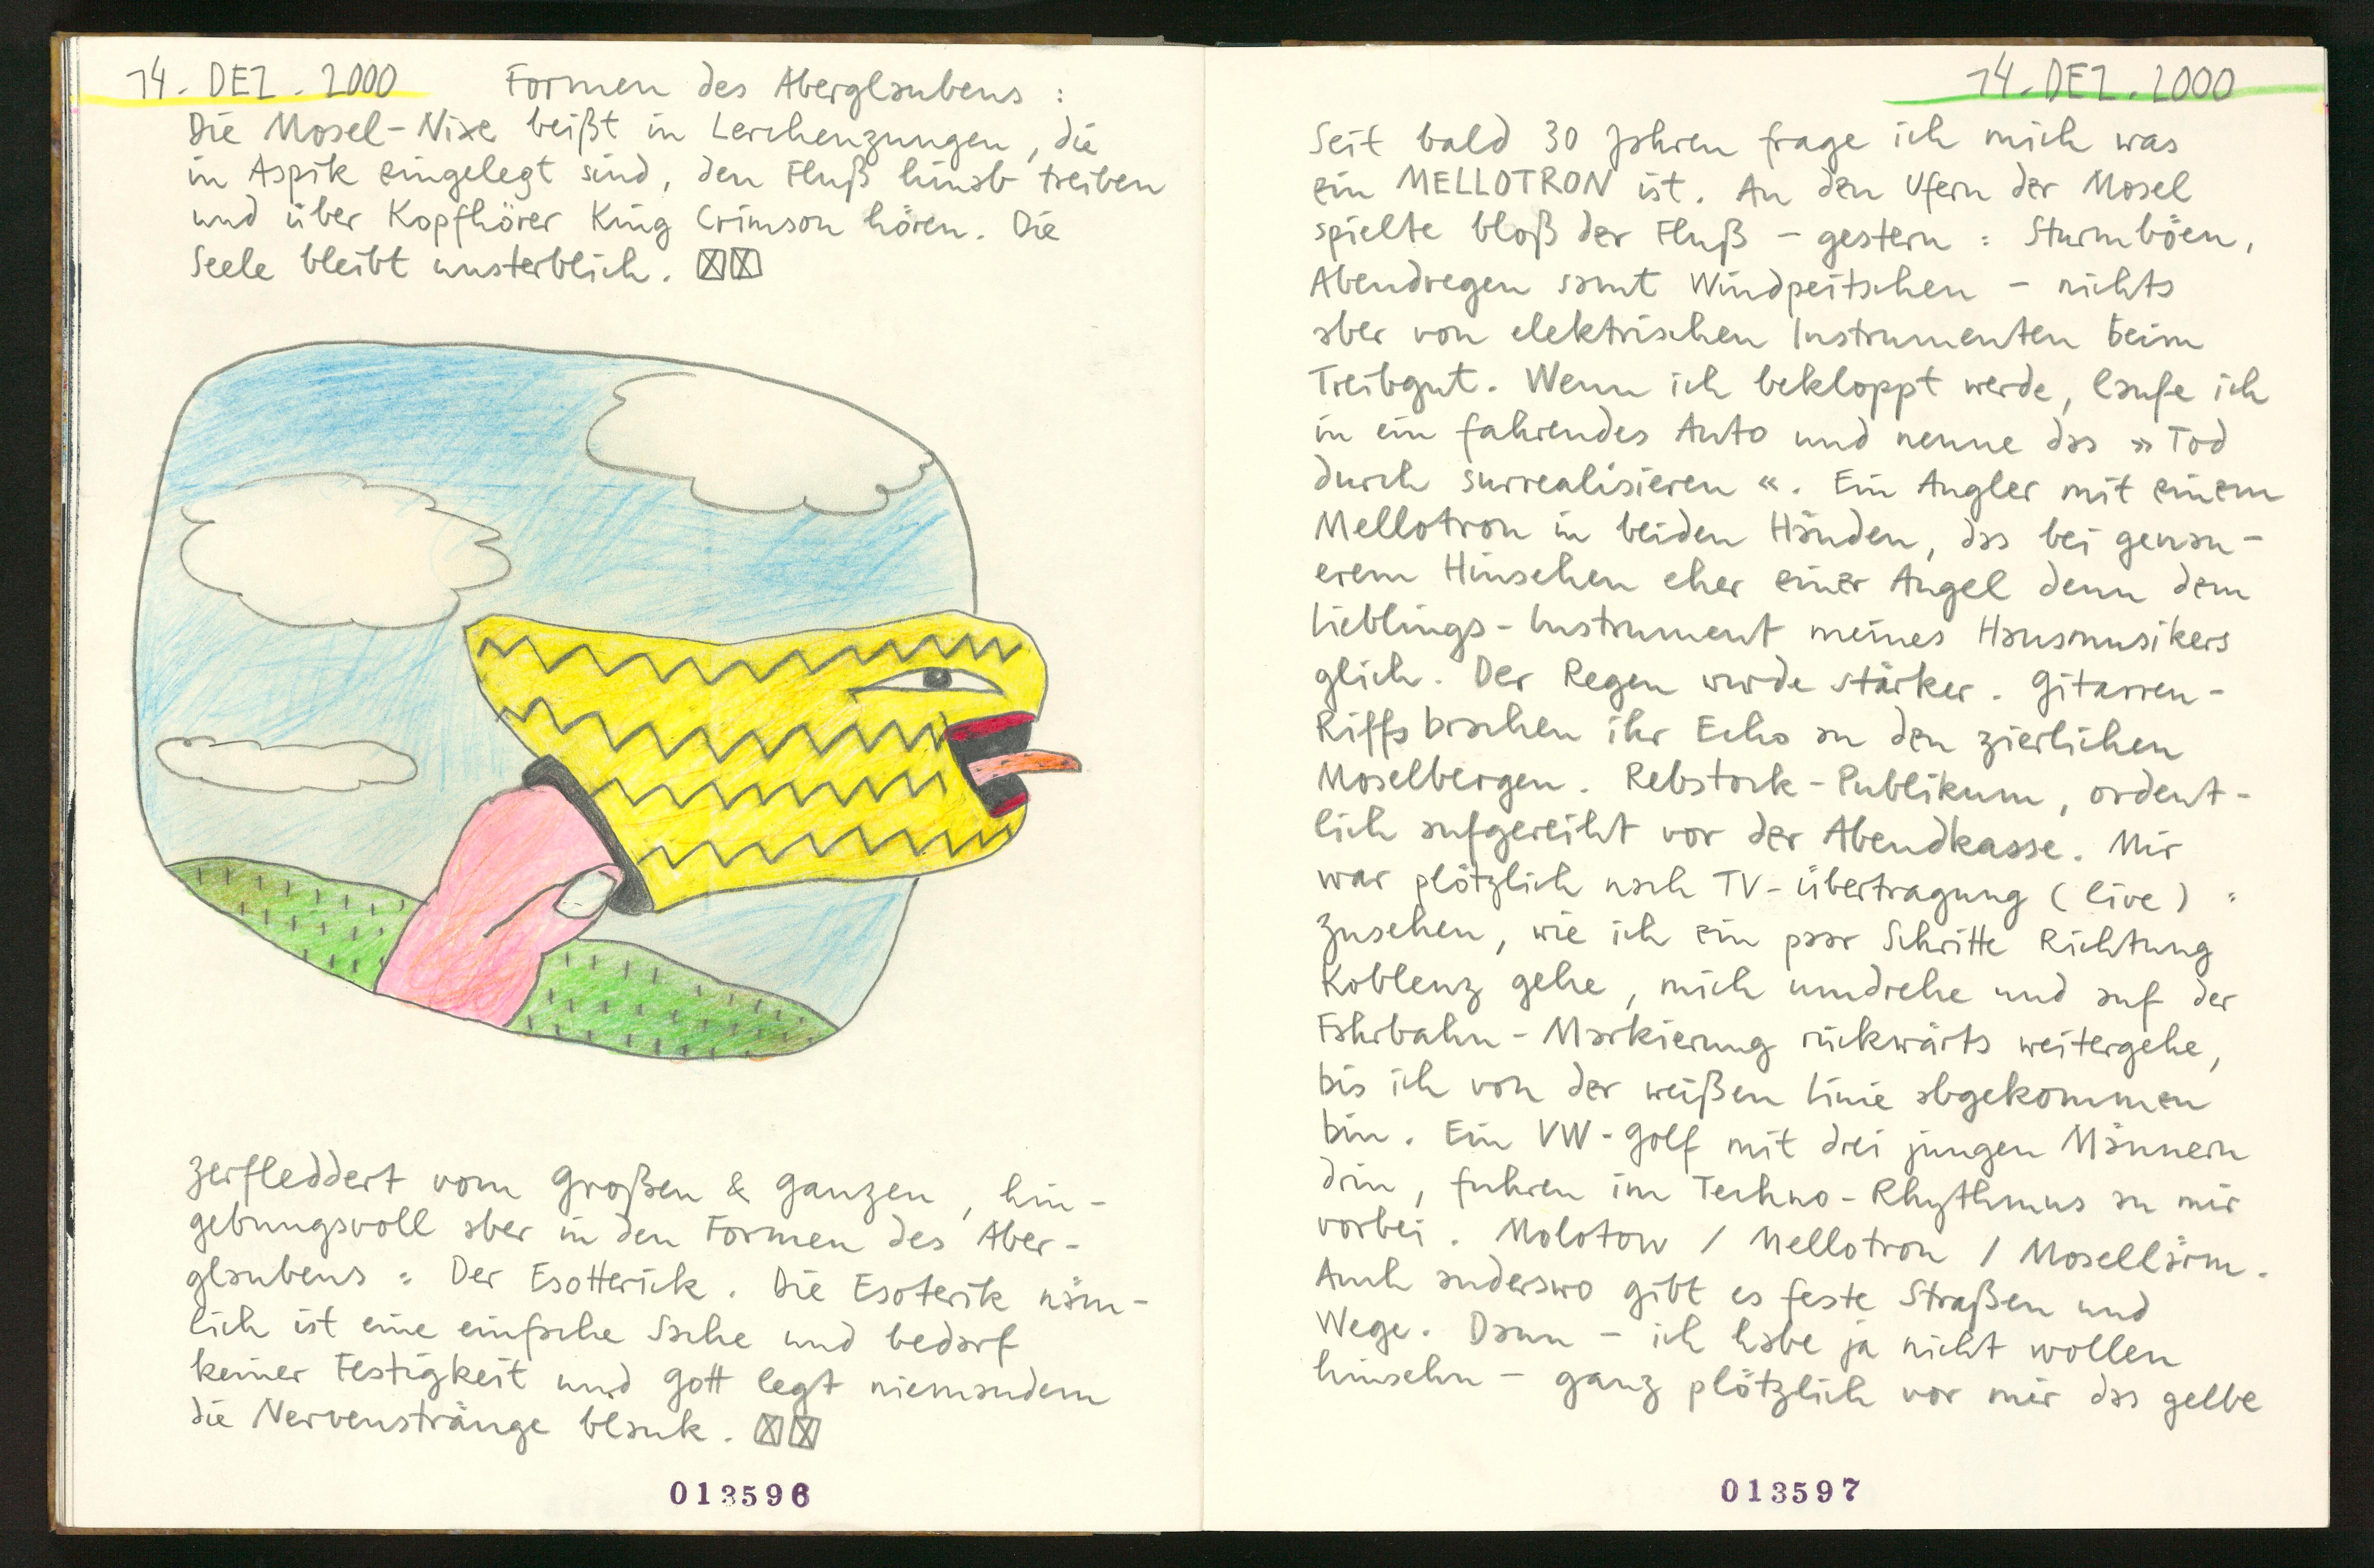 14. DEZ. 2000 Formen des Aberglaubens :
Die Mosel-Nixe beißt in Lerchenzungen, die
in Aspik eingelegt sind, den Fluß hinab treiben
und über Kopfhörer King Crimson hören. Die
Seele bleibt unsterblich. ☒☒
zerfleddert vom Großen & Ganzen, hin-
gebungsvoll aber in den Formen des Aber-
glaubens : Der Esotterick. Die Esoterik näm-
lich ist eine einfache Sache und bedarf
keiner Festigkeit und Gott legt niemandem
die Nervenstränge blank. ☒☒
013596
14. DEZ. 2000
Seit bald 30 Jahren frage ich mich was
ein MELLOTRON ist. An den Ufern der Mosel
spielte bloß der Fluß – gestern : Sturmböen,
Abendregen samt Windpeitschen – nichts
aber von elektrischen Instrumenten beim
Treibgut. Wenn ich bekloppt werde, laufe ich
in ein fahrendes Auto und nenne das »Tod
durch surrealisieren«. Ein Angler mit einem
Mellotron in beiden Händen, das bei genau-
erem Hinsehen eher einer Angel denn dem
Lieblings-Instrument meines Hausmusikers
glich. Der Regen wurde stärker. Gitarren-
Riffs brachen ihr Echo an den zierlichen
Moselbergen. Rebstock-Publikum, ordent-
lich aufgereiht vor der Abendkasse. Mir
war plötzlich nach TV-Übertragung (live) :
Zusehen, wie ich ein paar Schritte Richtung
Koblenz gehe, mich umdrehe und auf der
Fahrbahn-Markierung rückwärts weitergehe,
bis ich von der weißen Linie abgekommen
bin. Ein VW-Golf mit drei jungen Männern
drin, fuhren im Techno-Rhythmus an mir
vorbei. Molotow / Mellotron / Mosellärm.
Auch anderswo gibt es feste Straßen und
Wege. Dann – ich habe ja nicht wollen
hinsehn – ganz plötzlich vor mir das gelbe
013597